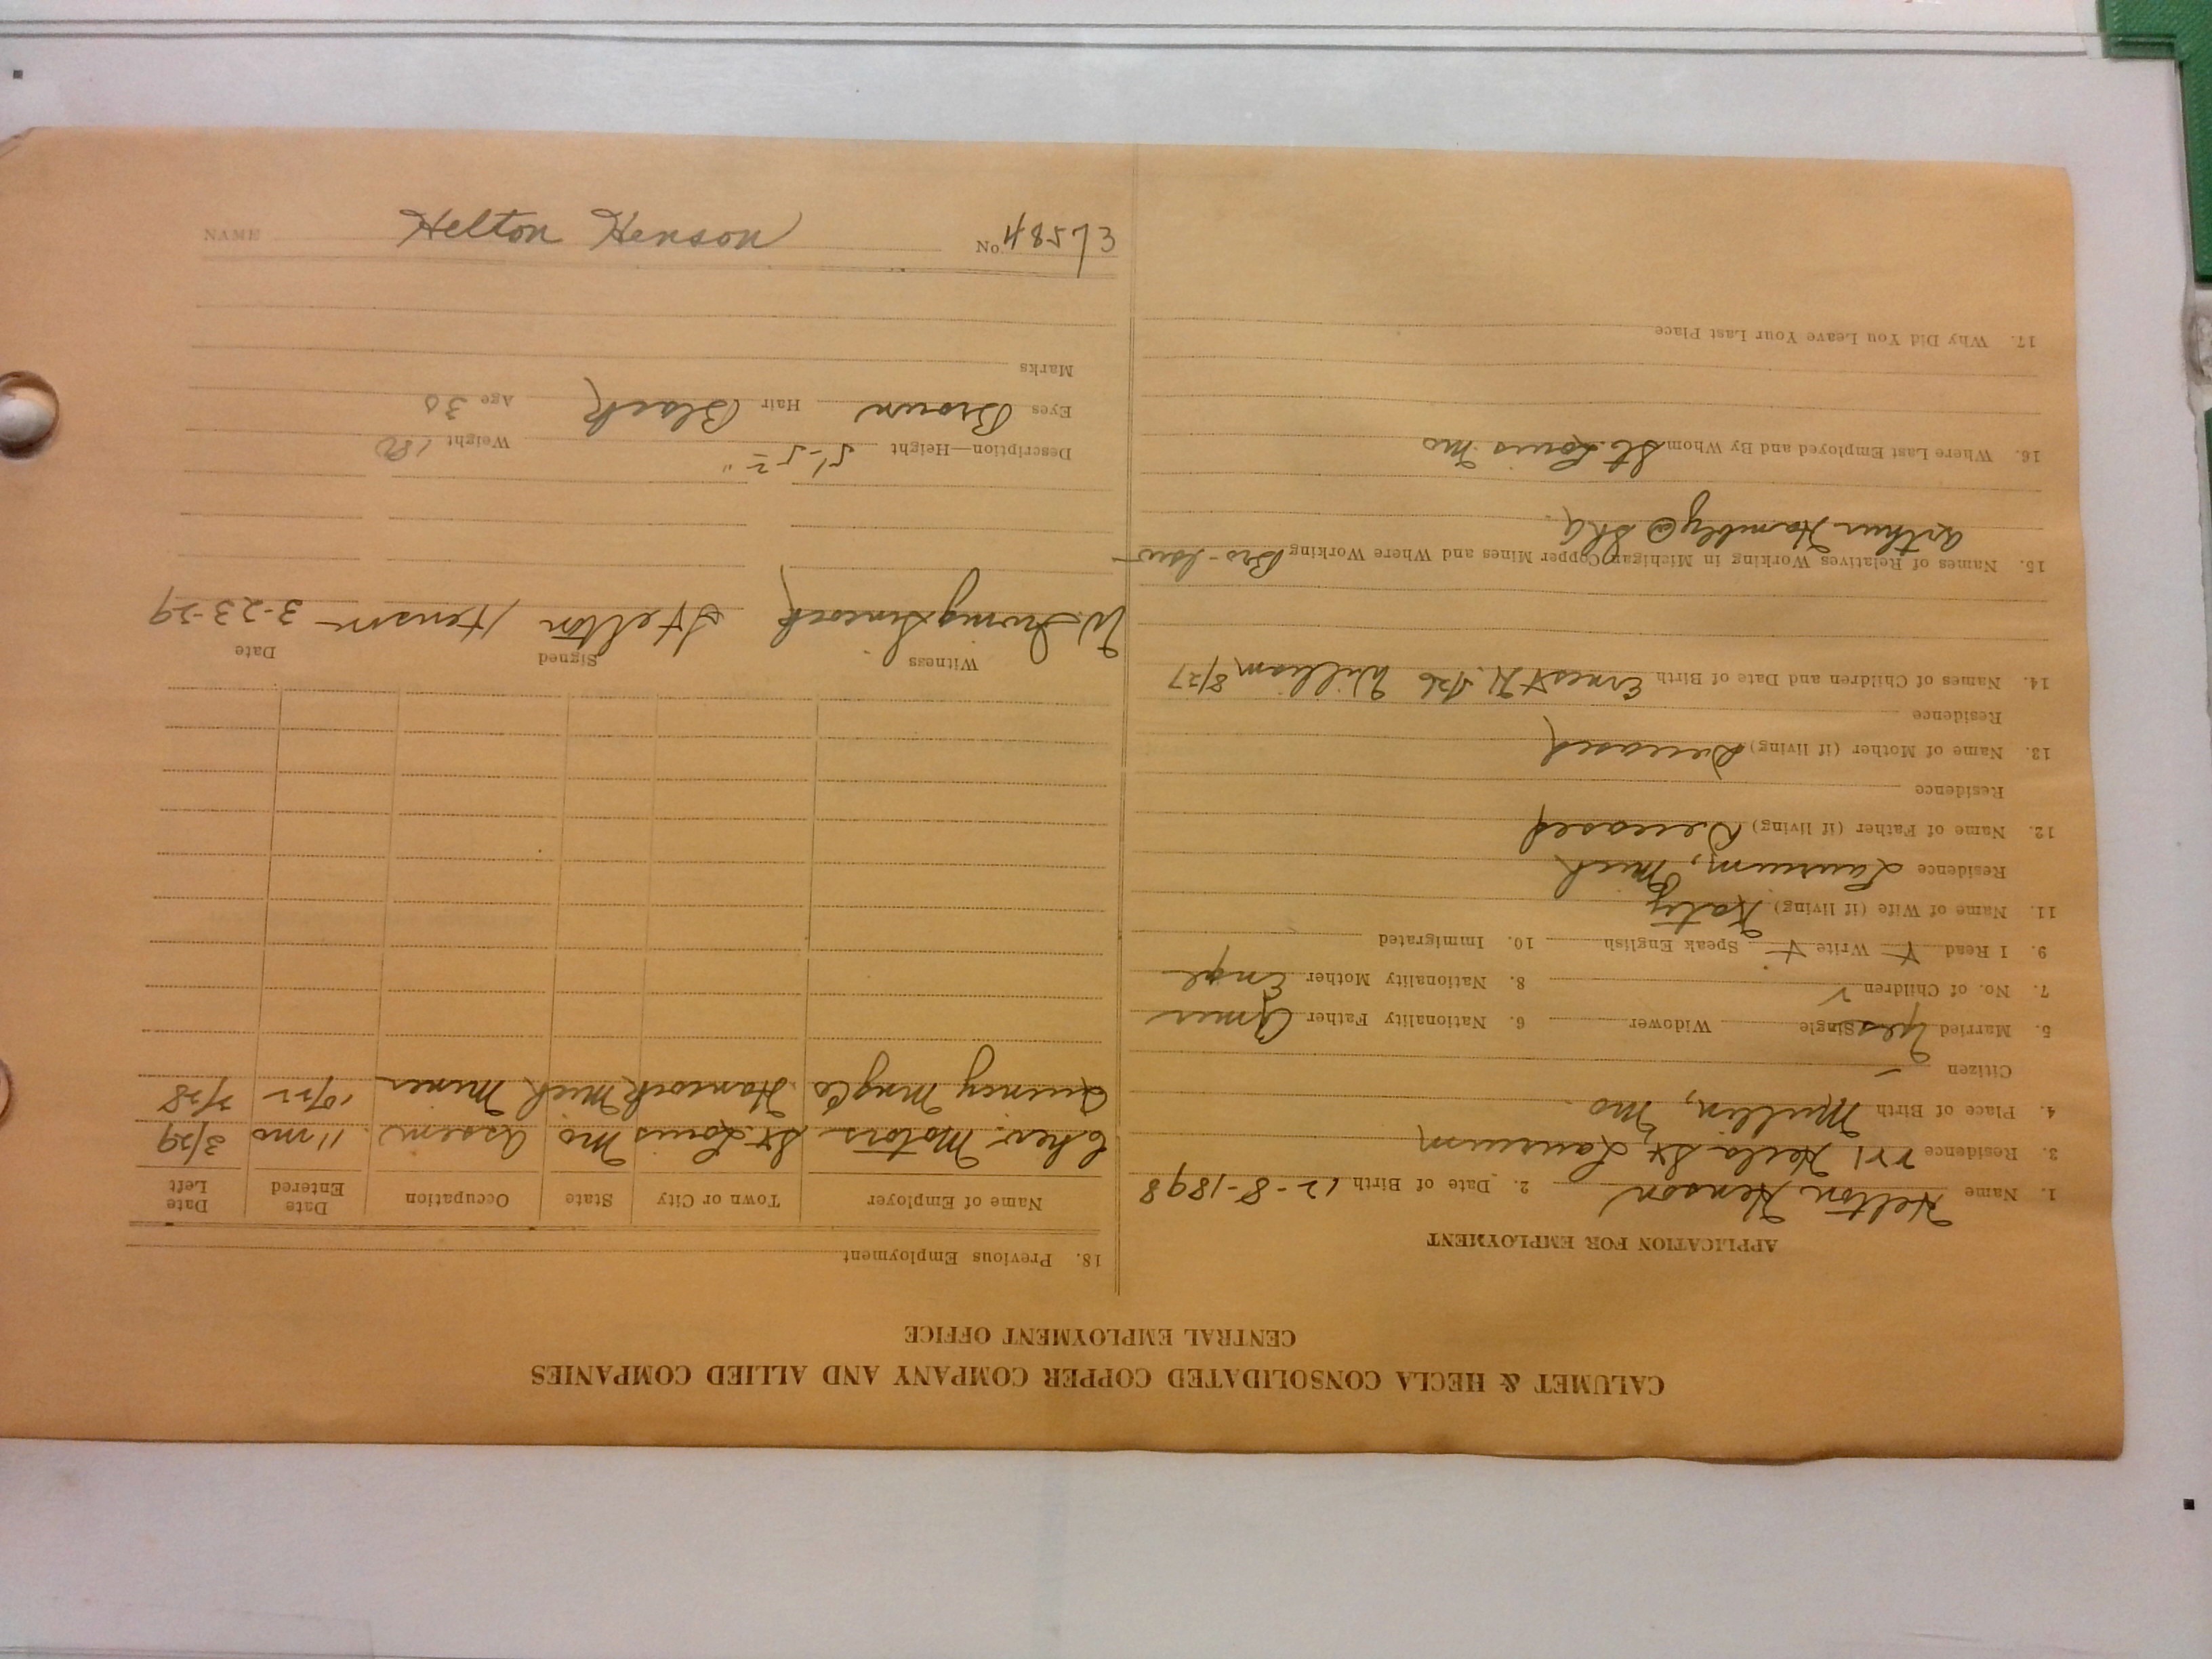 CALUMET & HECLA CONSOLIDATED COPPER COMPANY AND ALLIED COMPANIES
CENTRAL EMPLOYMENT OFFICE
APPLICATION FOR EMPLOYMENT
1. Name Helton Henson 2. Date of Birth 12-8-1898
3. Residence 221 Hecla St Laurium
4. Place of Birth Mo.
Citizen
5. Married Yes Single Widower 6. Nationality Father Amer
7. No. of Children 2 8. Nationality Mother Engl
9. I Read Y Write Y Speak English 10. Immigrated
11. Name of Wife (if living) Katy
Residence Laurium, Mich
12. Name of Father (if living) Deceased
Residence
13. Name of Mother (if living) Deceased
Residence
14. Names of Children and Date of Birth Ernest H. William 8/27
15. Names of Relatives Working in Michigan Copper Mines and Where Working Bro-law-
Arthur Hambly @
16. Where Last Employed and By Whom St. Louis Mo
17. Why Did You Leave Your Last Place
18. Previous Employment
Name of Employer Town or City State Occupation Date Entered Date Left
Chev. Motors St. Louis Mo Assem. 11 mo 3/29
Quincy Mng Co Hancock Mich Miner 10/22
Witness Signed Date
W. Irving Sincock Helton Henson 3-23-29
Description—Height 5'-5 Weight 180
Eyes Brown Hair Black Age 30
Marks
NAME Helton Henson No. 48573